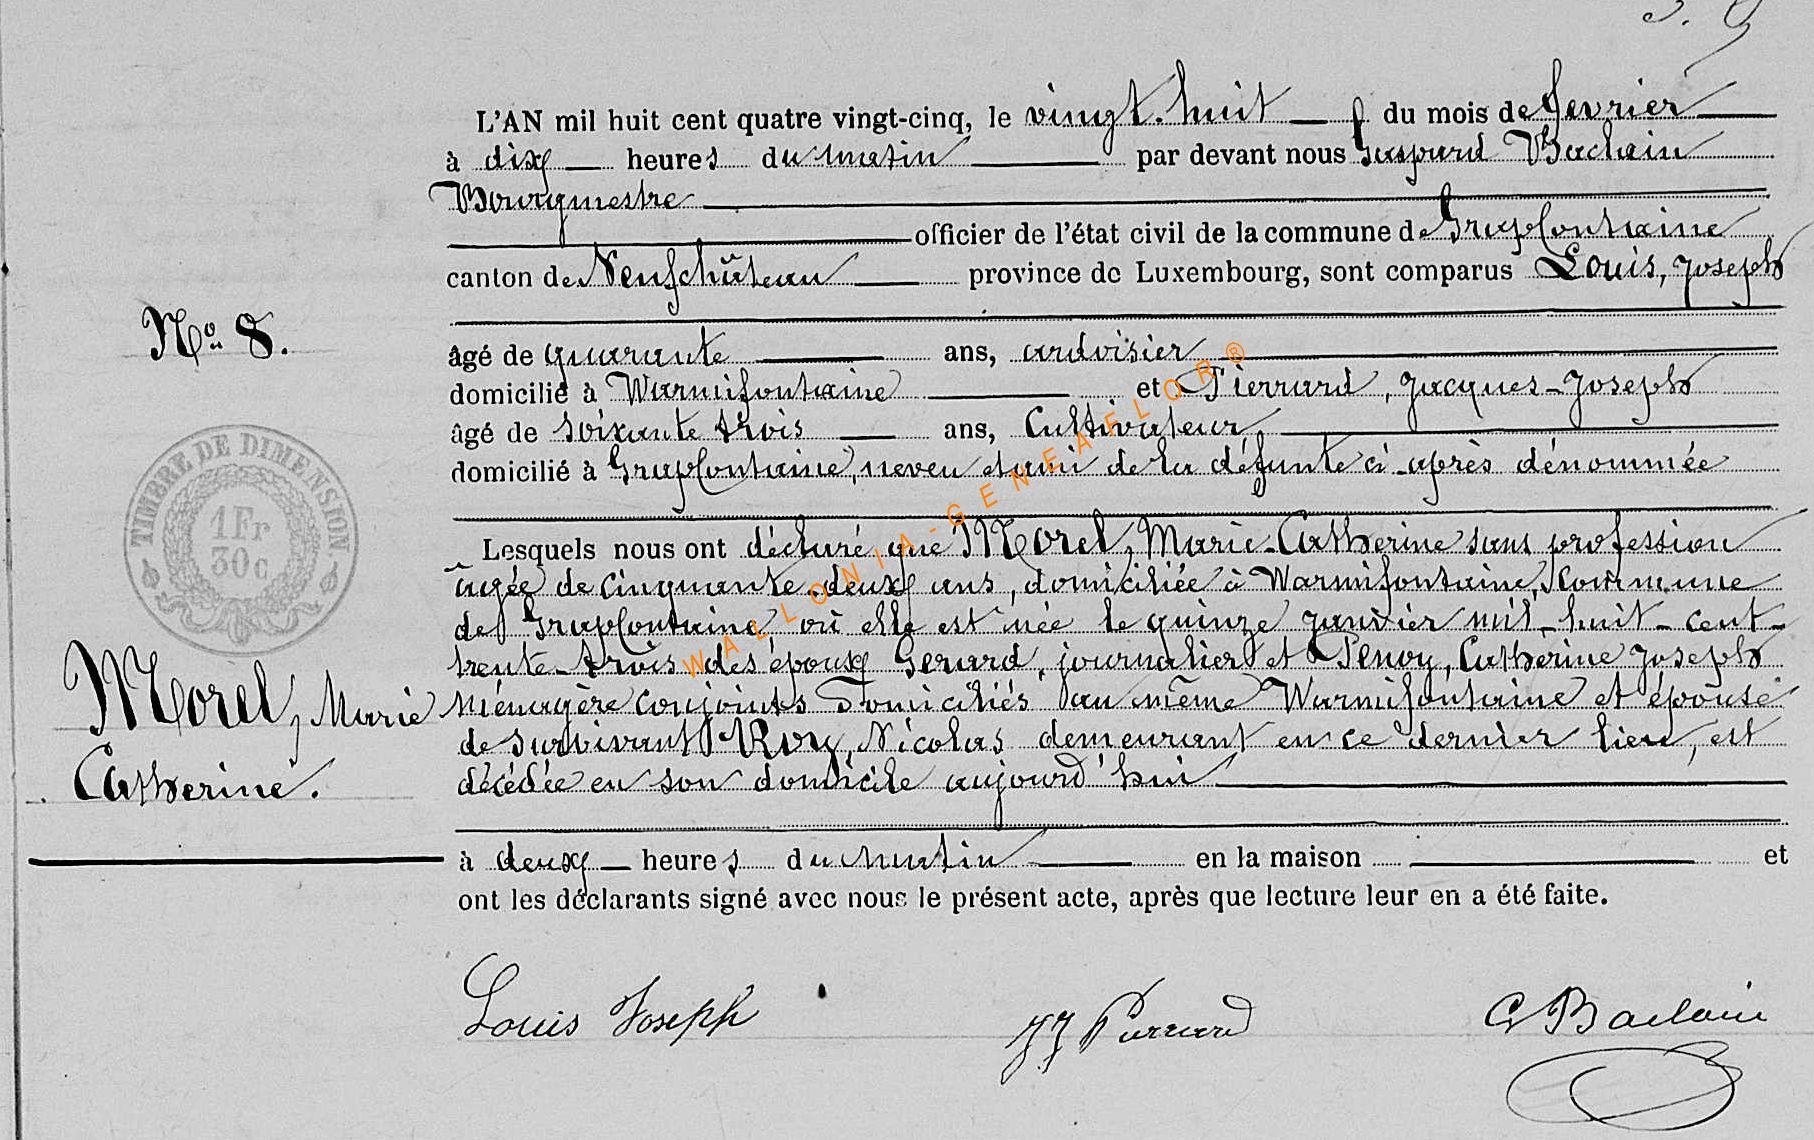 L'AN mil huit cent quatre vingt-cinq, le vingt-huit du mois de fevrier
à dix heures du matin par devant nous Gaspard Baclain
Bourgmestre
officier de l'état civil de la commune de Grapfontaine
canton de Neufchâteau province de Luxembourg, sont comparus Louis, Joseph
No 8.
âgé de quarante ans, ardoisier
domicilié à Warmifontaine et Pierrard, Jacques-Joseph
âgé de soixante trois ans, Cultivateur,
domicilié à Grapfontaine, neveu et ami de la défunte ci-après dénommée
TIMBRE DE DIMENSION
1 Fr
30c
Lesquels nous ont déclaré que Morel, Marie-Catherine sans profession
âgée de cinquante-deux ans, domiciliée à Warmifontaine, Commune
de Grapfontaine, où elle est née le quinze janvier mil-huit-cent-
trente-trois des époux Gerard, journalier et Penoy, Catherine Joseph
ménagère conjoints domiciliés au même Warmifontaine et épouse
de survivant Roy, Nicolas demeurant en ce dernier lieu, est
décédée en son domicile aujourd'hui
Morel, Marie
Catherine.
à deux heures du matin en la maison et
ont les déclarants signé avec nous le présent acte, après que lecture leur en a été faite.
Louis Joseph JJ Pierrard G Baclain
WALLONIA-GENEAFLOR®